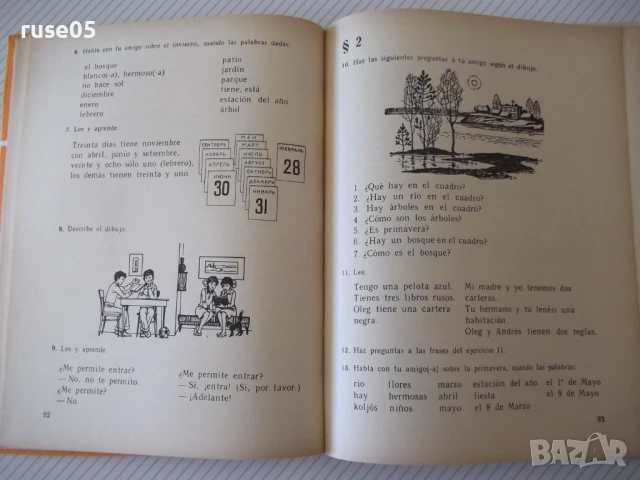 ruse05
6. Habla con tu amigo sobre el invierno, usando las palabras dadas:
el bosque
blanco(-a), hermoso(-a)
no hace sol
diciembre
enero
febrero
patio
jardín
parque
tiene, está
estación del año
árbol
7. Lee y aprende.
Treinta días tiene noviembre
con abril, junio y setiembre,
veinte y ocho sólo uno (febrero),
los demás tienen treinta y uno.
СЕНТЯБРЬ
НОЯБРЬ
АПРЕЛЬ
ИЮНЬ
30
МАЙ
МАРТ
ИЮЛЬ
АВГУСТ
ОКТЯБРЬ
ДЕКАБРЬ
ЯНВАРЬ
31
ФЕВРАЛЬ
28
8. Describe el dibujo.
9. Lee y aprende.
¿Me permite entrar?
— No, no te permito.
¿Me permite?
— No.
¿Me permite entrar?
— Sí, ¡entra! (Sí, por favor.)
— ¡Adelante!
92
§ 2
10. Haz las siguientes preguntas a tu amigo según el dibujo.
1. ¿Qué hay en el cuadro?
2. ¿Hay un río en el cuadro?
3. ¿Hay árboles en el cuadro?
4. ¿Cómo son los árboles?
5. ¿Es primavera?
6. ¿Hay un bosque en el cuadro?
7. ¿Cómo es el bosque?
11. Lee.
Tengo una pelota azul.
Tienes tres libros rusos.
Oleg tiene una cartera
negra.
Mi madre y yo tenemos dos
carteras.
Tu hermano y tú tenéis una
habitación.
Oleg y Andrés tienen dos reglas.
12. Haz preguntas a las frases del ejercicio 11.
13. Habla con tu amigo(-a) sobre la primavera, usando las palabras:
río flores marzo estación del año el 1° de Mayo
hay hermosas abril fiesta el 9 de Mayo
koljós niños mayo el 8 de Marzo
93
BAZAR
bg